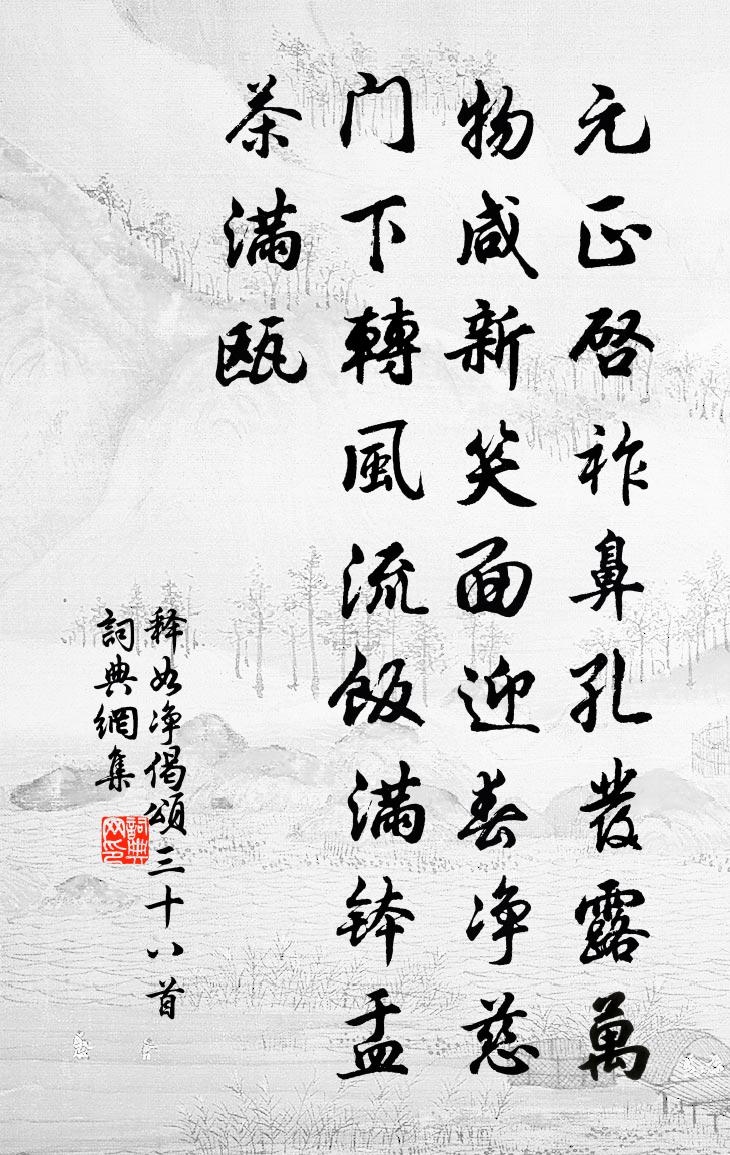 元正啓祚鼻孔發露萬
物咸新笑面迎春净慈
门下轉風流飯滿鉢盂
茶滿瓯
释如净偈頌三十八首
詞典網集
詞典
网印